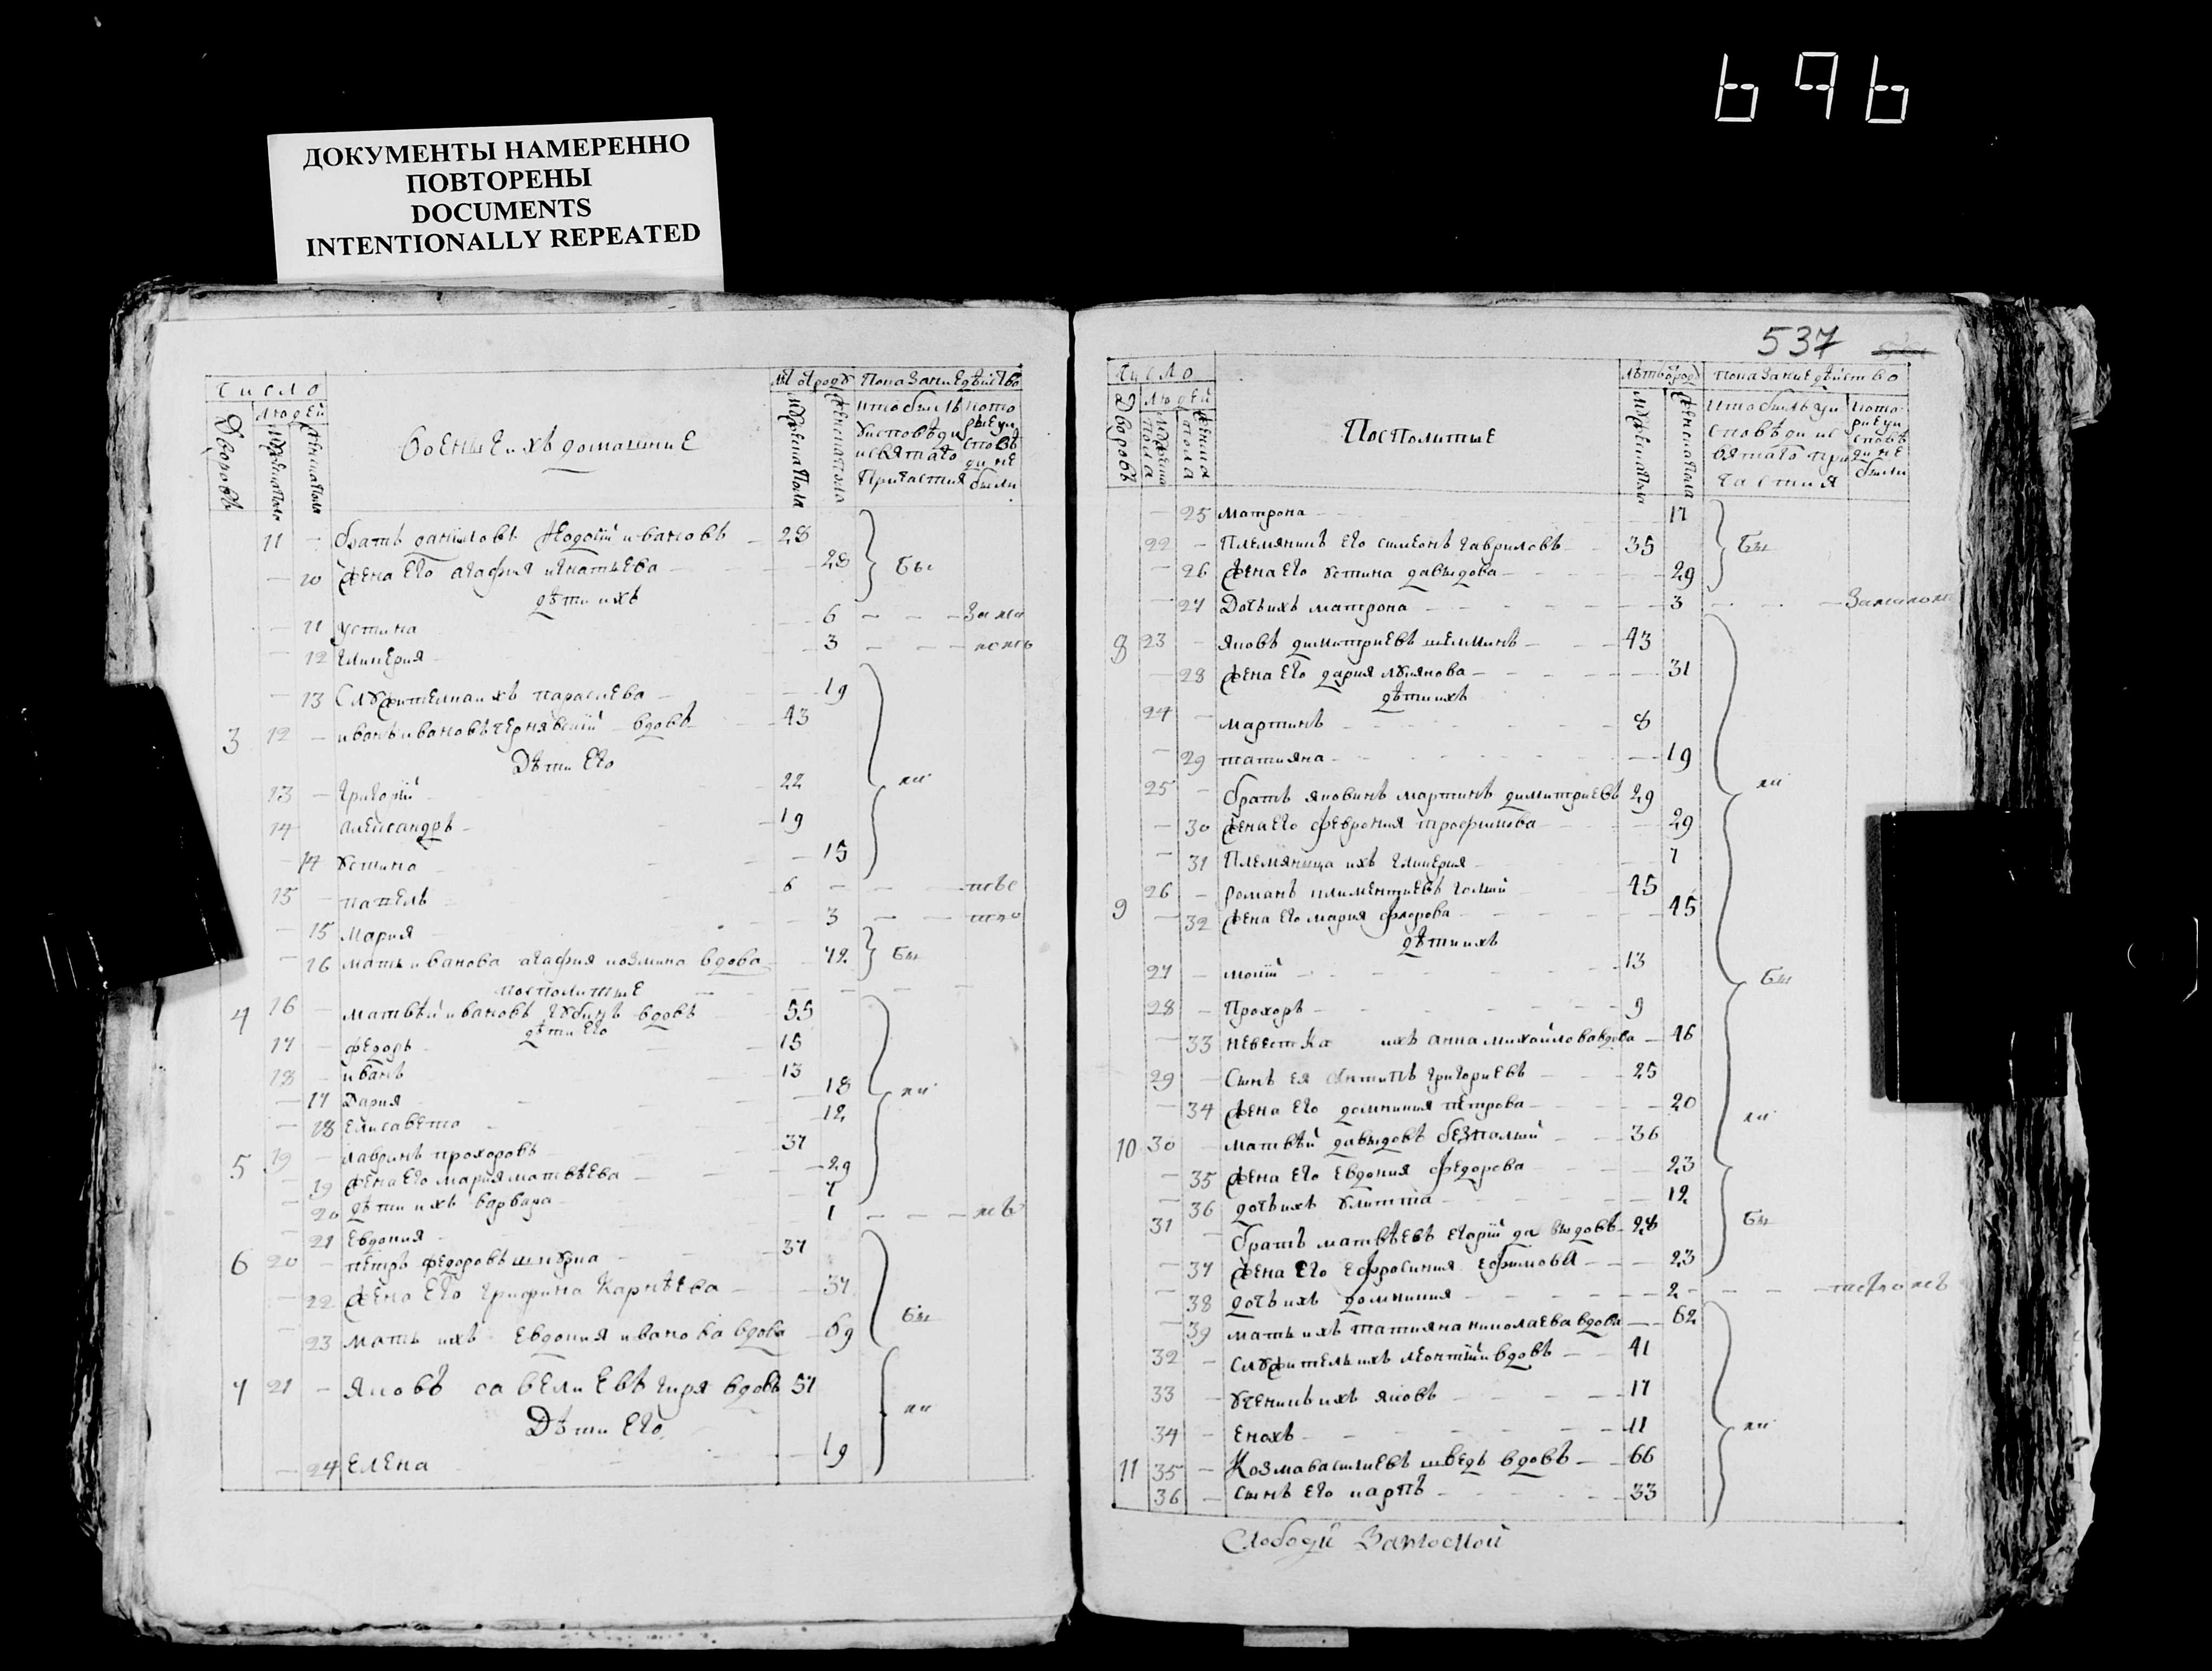 696
ДОКУМЕНТЫ НАМЕРЕННО
ПОВТОРЕНЫ
DOCUMENTS
INTENTIONALLY REPEATED
Число
Людей
Дворовъ
Мужеска пола
Женска пола
Военные и ихъ домашние
лѣт от роду
Показание действо
мужеска пола
женска пола
кто былъ у исповѣди и святаго причастия
которые у исповѣди не были
11 — братъ данииловъ Федосий ивановъ — 28
— 10 жена Его агафия игнатьева — 28 Бы
дѣти ихъ
— 11 устина — 6 — — — За ма
— 12 гликерия — 3 — — —
— 13 Служителка ихъ параскева — 19
3 12 — иванъ ивановъ чернявский вдовъ 43
Дѣти Его
13 — григорий 22 ли
14 александръ — 19
— 14 устина — 15
15 — павелъ 6 — — —
— 15 Мария — 3 — —
— 16 мать иванова агафия козмина вдова — 72 Бы
посполитые
4 16 — матвѣй ивановъ губинъ вдовъ 55
дѣти Его
17 — федоръ 15
18 — иванъ 13
— 17 Дария — 18 ли
— 18 Елисавета — 12
5 19 — лавринъ прохоровъ 37
— 19 жена Его мария матвѣева — 29
— 20 дѣти ихъ варвара 7
— 21 Евдокия 1 — — —
6 20 — петръ федоровъ шкурка 37
— 22 жена Его Крифина Карнѣева — 37
— 23 мать ихъ Евдокия иванова вдова — 69 Бы
7 21 — Яковъ савелиевъ гиря вдовъ 57
Дѣти Его ли
— 24 Елена — 19
537
Число
Людей
Дворовъ
Мужеска пола
Женска пола
Посполитые
лѣтъ от род
показание действо
мужеска пола
женска пола
кто былъ у исповѣди и святаго причастия
которые у исповѣди не были
— 25 Матрона — 17
22 — Племянникъ Его симеонъ гавриловъ — 35 Бы
— 26 жена Его устина давыдова — 29
— 27 Дочь ихъ матрона — 3 — — —
8 23 — Яковъ димитриевъ шелминъ — 43
— 28 жена Его дария лукянова — 31
дѣти ихъ
24 — мартинъ — 8
— 29 татияна — 19
25 — братъ яковинъ мартинъ димитриевъ 29 ли
— 30 жена Его феврония трофимова — 29
— 31 Племяница ихъ гликерия — 7
9 26 — романъ климентиевъ голий 45
— 32 жена Его мария фролова — 45
дѣти ихъ
27 — моисий — 13
28 — Прохоръ — 9 Бы
— 33 Невестка ихъ анна михайлова вдова — 46
29 — Сынъ ея антипъ григориевъ — 25
— 34 жена Его домникия петрова — 20
10 30 — матвѣй давыдовъ безпалый — 36 ли
— 35 жена Его Евдокия федорова — 23
— 36 дочь ихъ улитта — 12
31 — братъ матвѣевъ егорий давыдовъ — 28 Бы
— 37 жена Его ефросиния ефимова — 23
— 38 дочь ихъ домникия — 2 — — —
— 39 мать ихъ татияна николаева вдова — 62
32 — служитель ихъ леонтий вдовъ — 41
33 — ученикъ ихъ яковъ — 17
34 — Енохъ — 11 ли
11 35 — Козма василиевъ шведъ вдовъ — 66
36 — сынъ Его карпъ — 33
Слободы